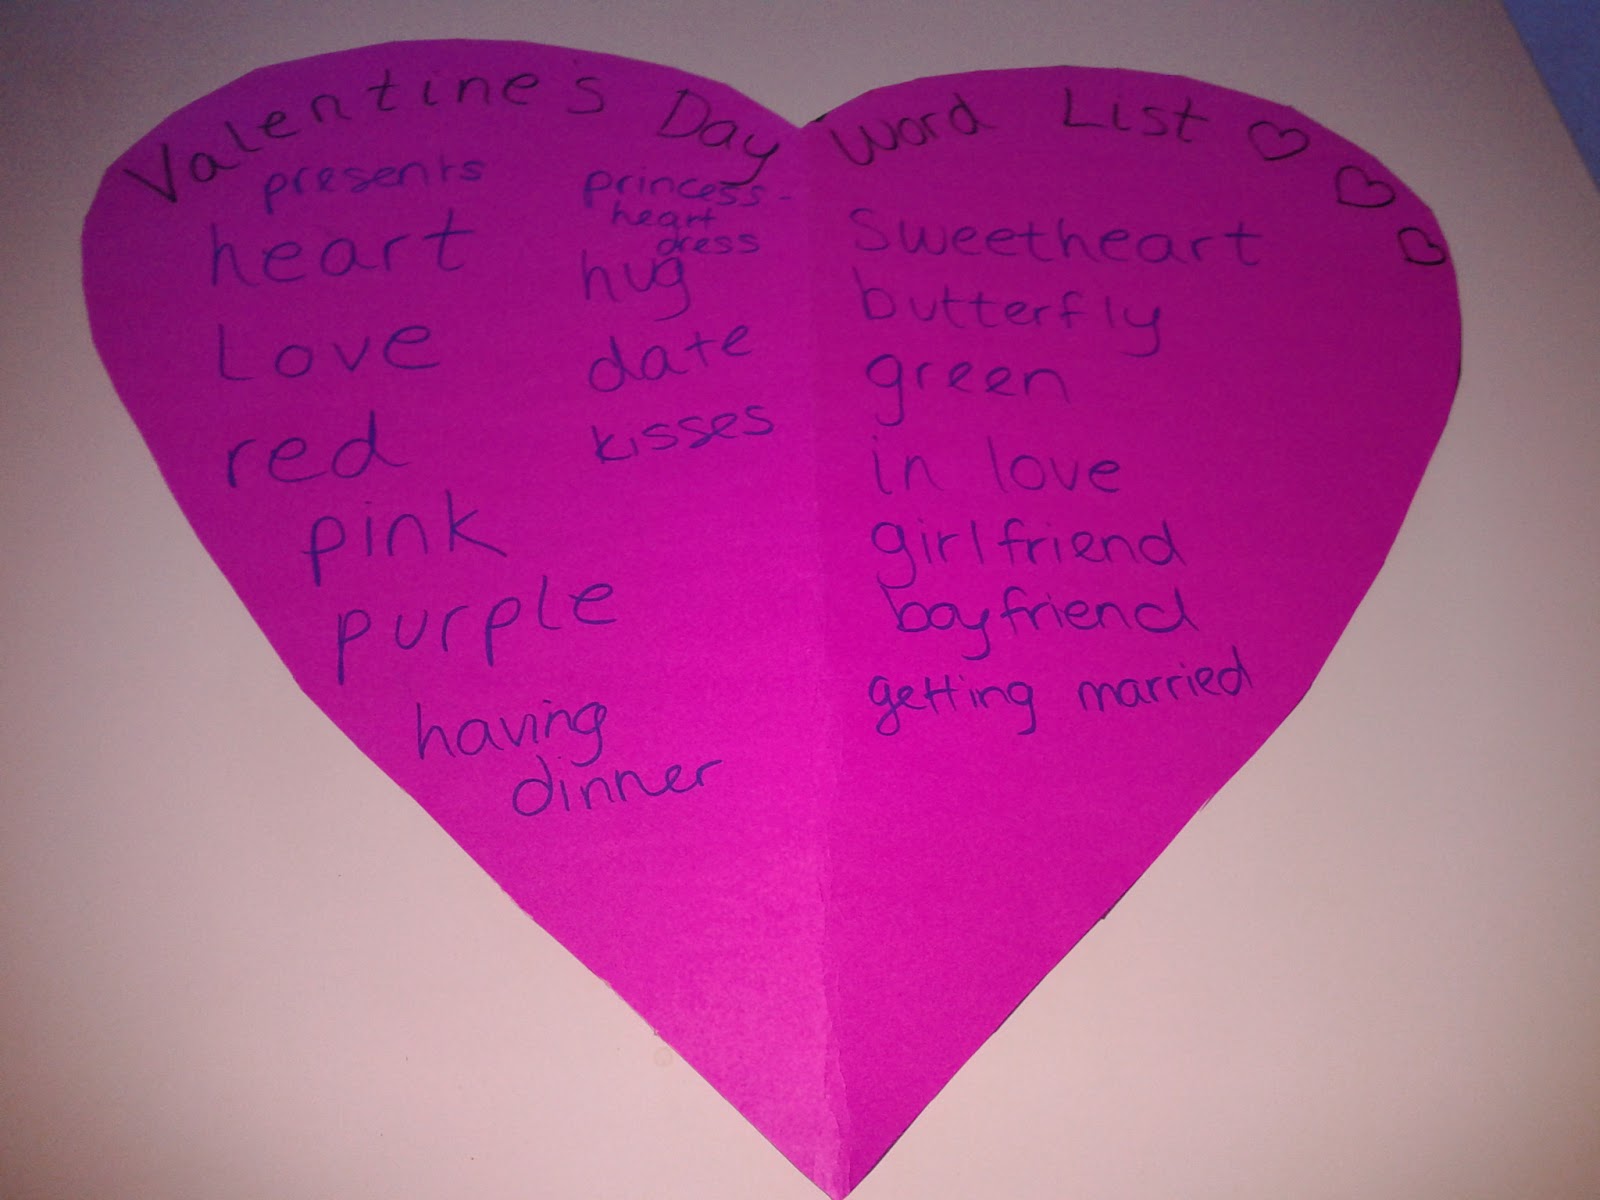 Valentines Day Word List
presents
heart
Love
red
pink
purple
having
dinner
princess-
heart
dress
hug
date
kisses
Sweetheart
butterfly
green
in love
girlfriend
boyfriend
getting married